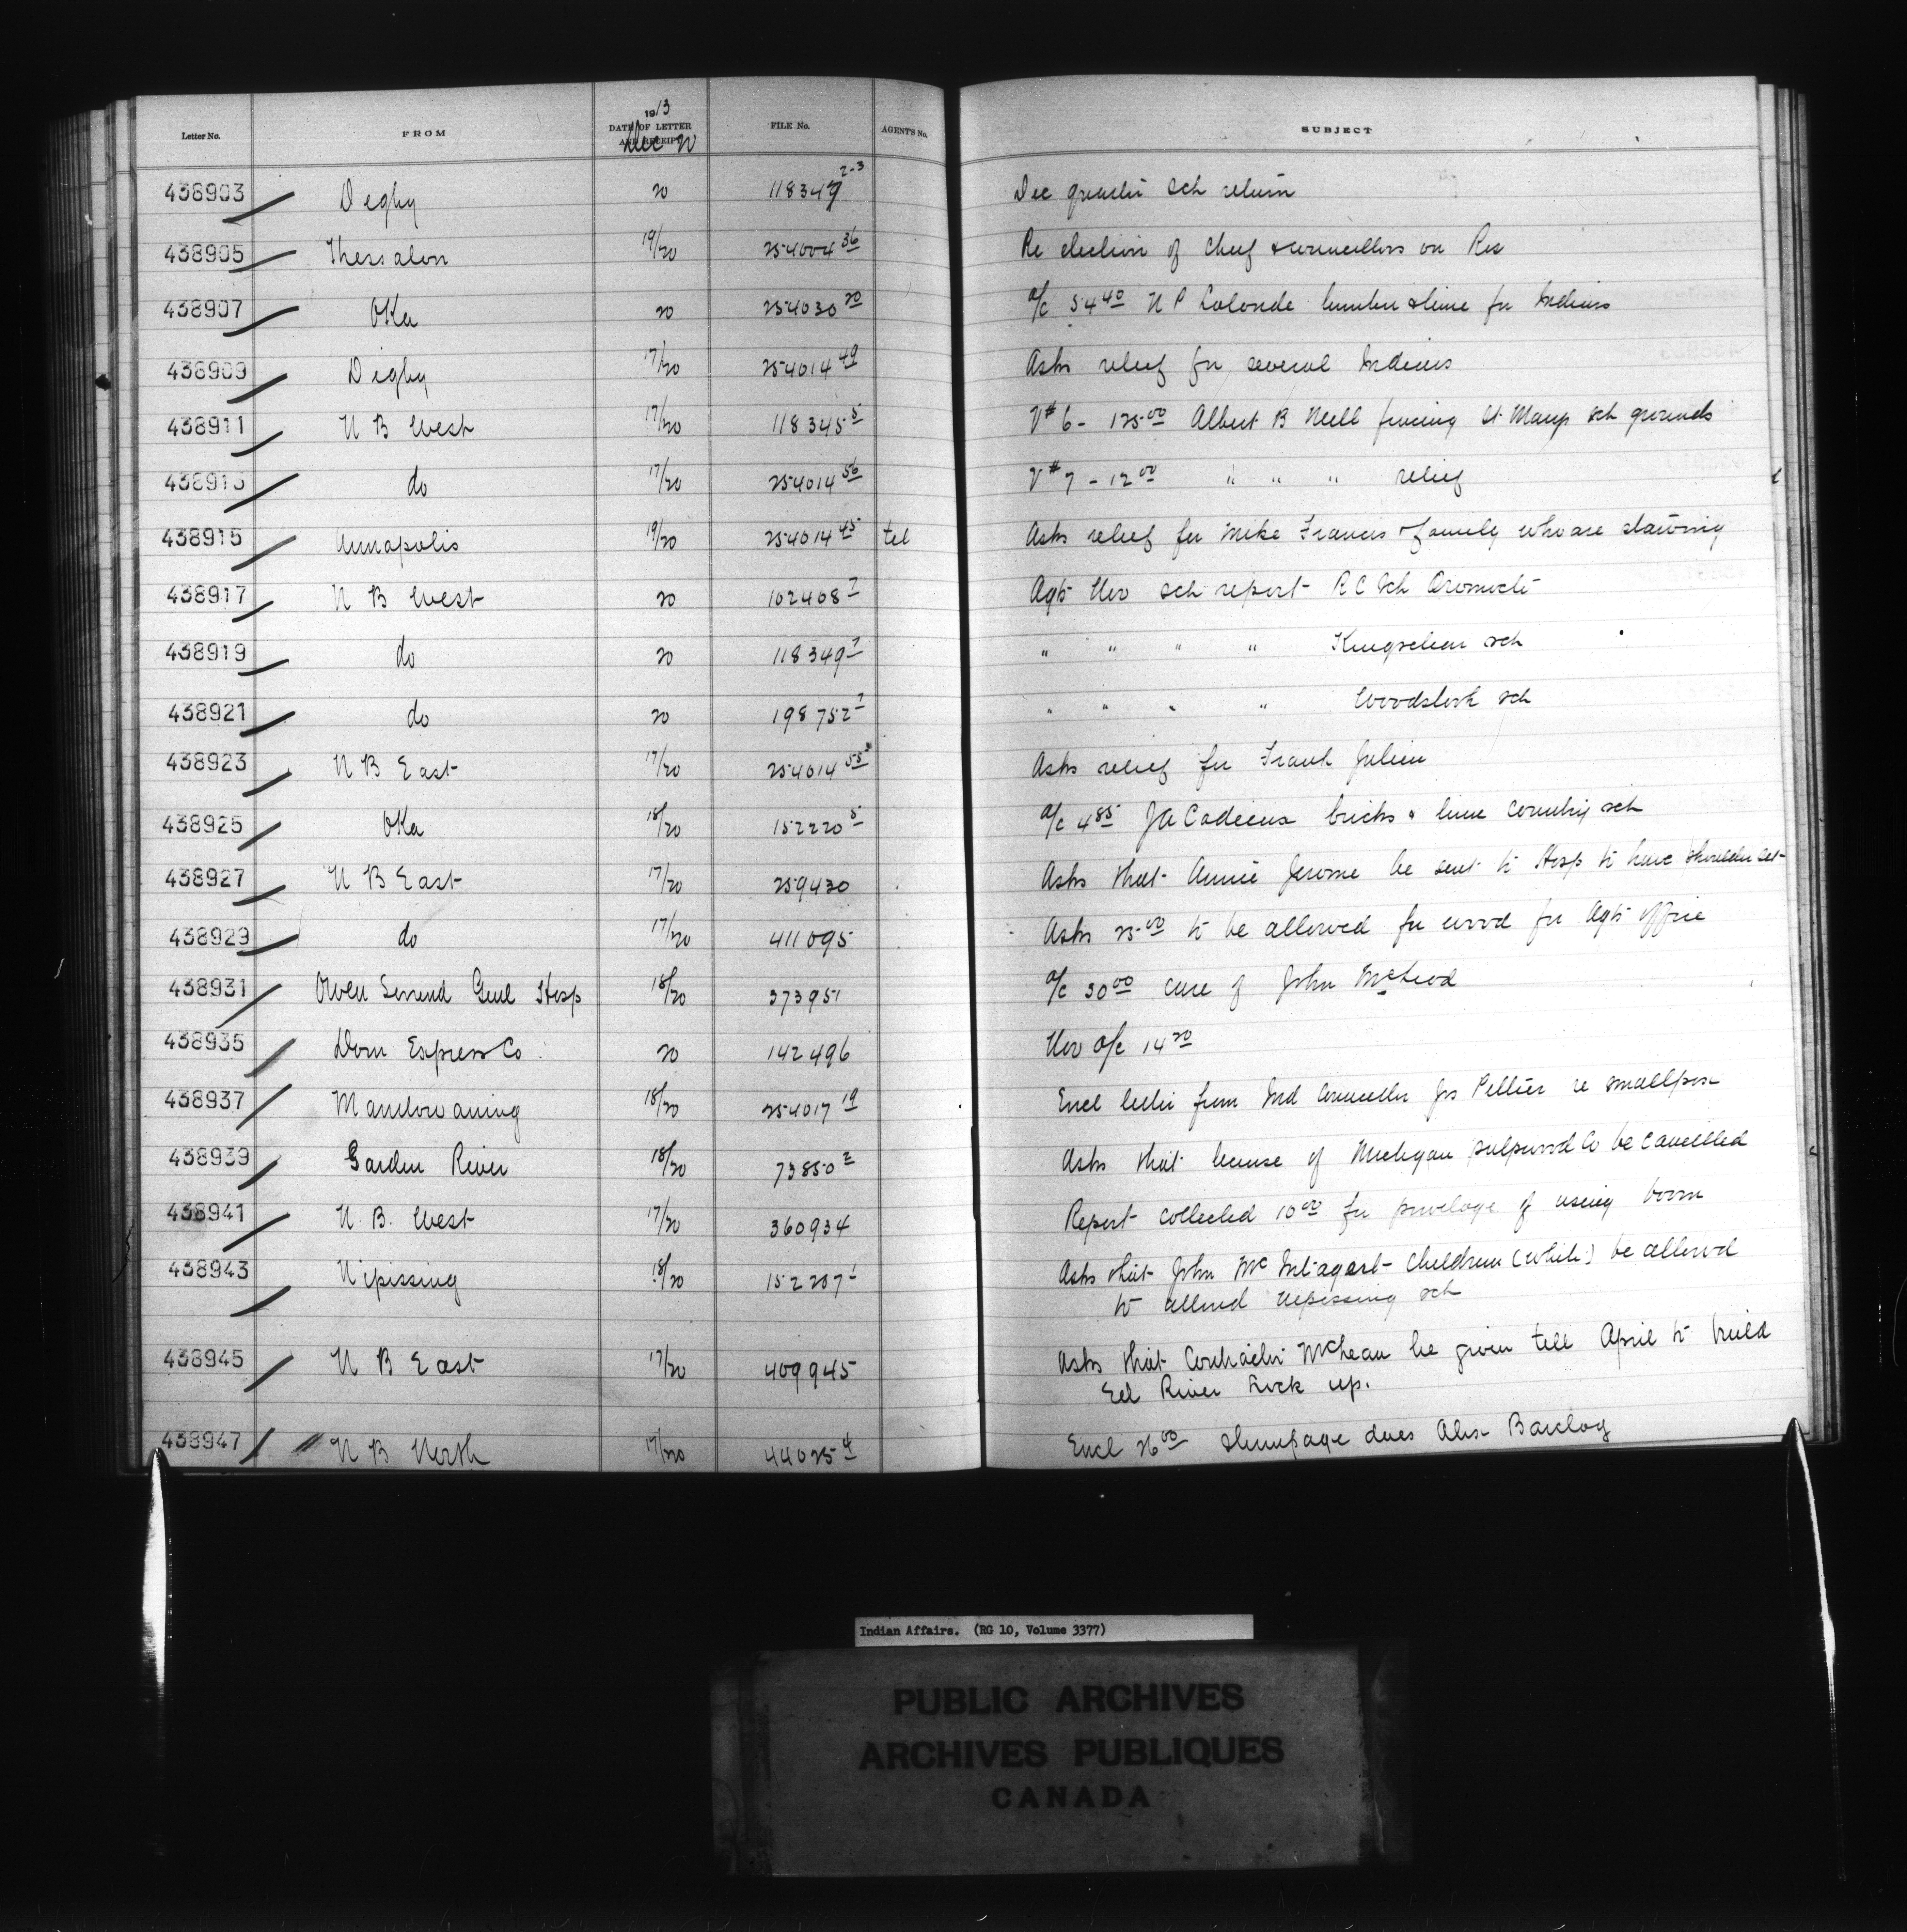 Letter No. FROM 1913 DATE OF LETTER AND RECEIPT Dec 20 FILE No. AGENT'S No. SUBJECT
438903 Digby 20 118349 2-3 Dec quarter sch return
438905 Thessalon 19/20 254004 36 Re election of Chief & councillors on Res
438907 Oka 20 254030 20 a/c 54 40 N P Lalonde lumber & lime for Indians
438909 Digby 17/20 254014 49 Asks relief for several Indians
438911 N B West 17/20 118345 5 V# 6 - 125 00 Albert B Neill fencing St Marys sch grounds
438913 do 17/20 254014 56 V# 7 - 12 00 " " " relief
438915 Annapolis 19/20 254014 45 tel Asks relief for Mike Francis & family who are starving
438917 N B West 20 102408 7 Agts Nov sch report R C Sch Oromocto
438919 do 20 118349 7 " " " " Kingsclear sch
438921 do 20 198752 7 " " " " Woodstock sch
438923 N B East 17/20 254014 55 Asks relief for Frank Julien
438925 Oka 18/20 152220 5 a/c 4 85 J A Cadieux bricks & lime Country sch
438927 N B East 17/20 259430 Asks that Annie Jerome be sent to Hosp to have shoulder set
438929 do 17/20 411095 Asks 25 00 to be allowed for wood for Agts office
438931 Owen Sound Genl Hosp 18/20 373951 a/c 30 00 care of John McLeod
438935 Dom Express Co. 20 142496 Nov a/c 14 20
438937 Manitowaning 18/20 254017 19 Encl letter from Ind Councillor Jos Peltier re smallpox
438939 Garden River 18/20 73850 2 Asks that license of Michigan pulpwood Co be cancelled
438941 N. B. West 17/20 360934 Report collected 10 00 for privelage of using boom
438943 Nipissing 18/20 152207 1 Asks that John Mc children (white) be allowed
to attend Nepissing sch
438945 N B East 17/20 409945 Asks that Contractor McLean be given till April to build
Eel River Lock up.
438947 N B North 17/20 44025 4 Encl 26 00 stumpage dues Alex Barclay
Indian Affairs. (RG 10, Volume 3377)
PUBLIC ARCHIVES
ARCHIVES PUBLIQUES
CANADA